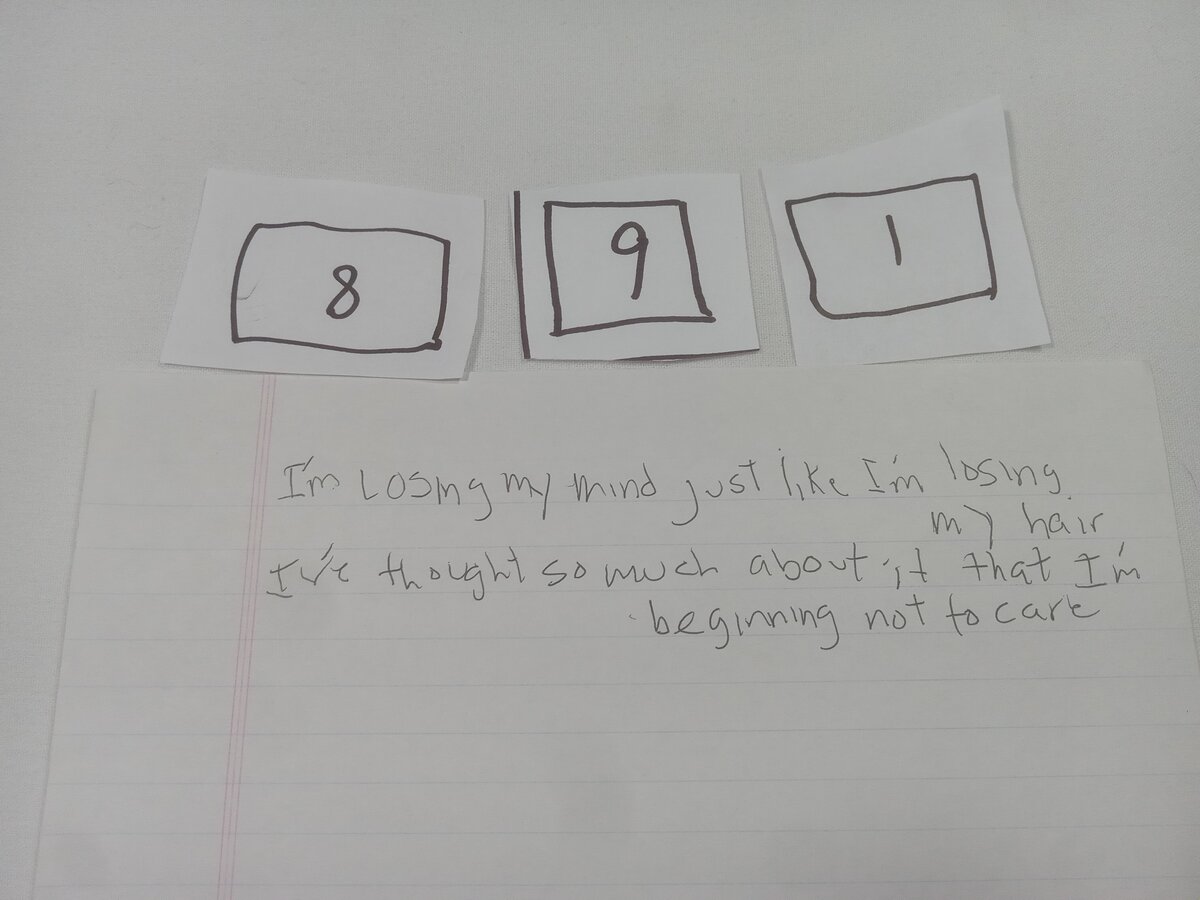 8 9 1
I'm Losing my mind just like I'm losing
my hair
I've thought so much about it that I'm
beginning not to care